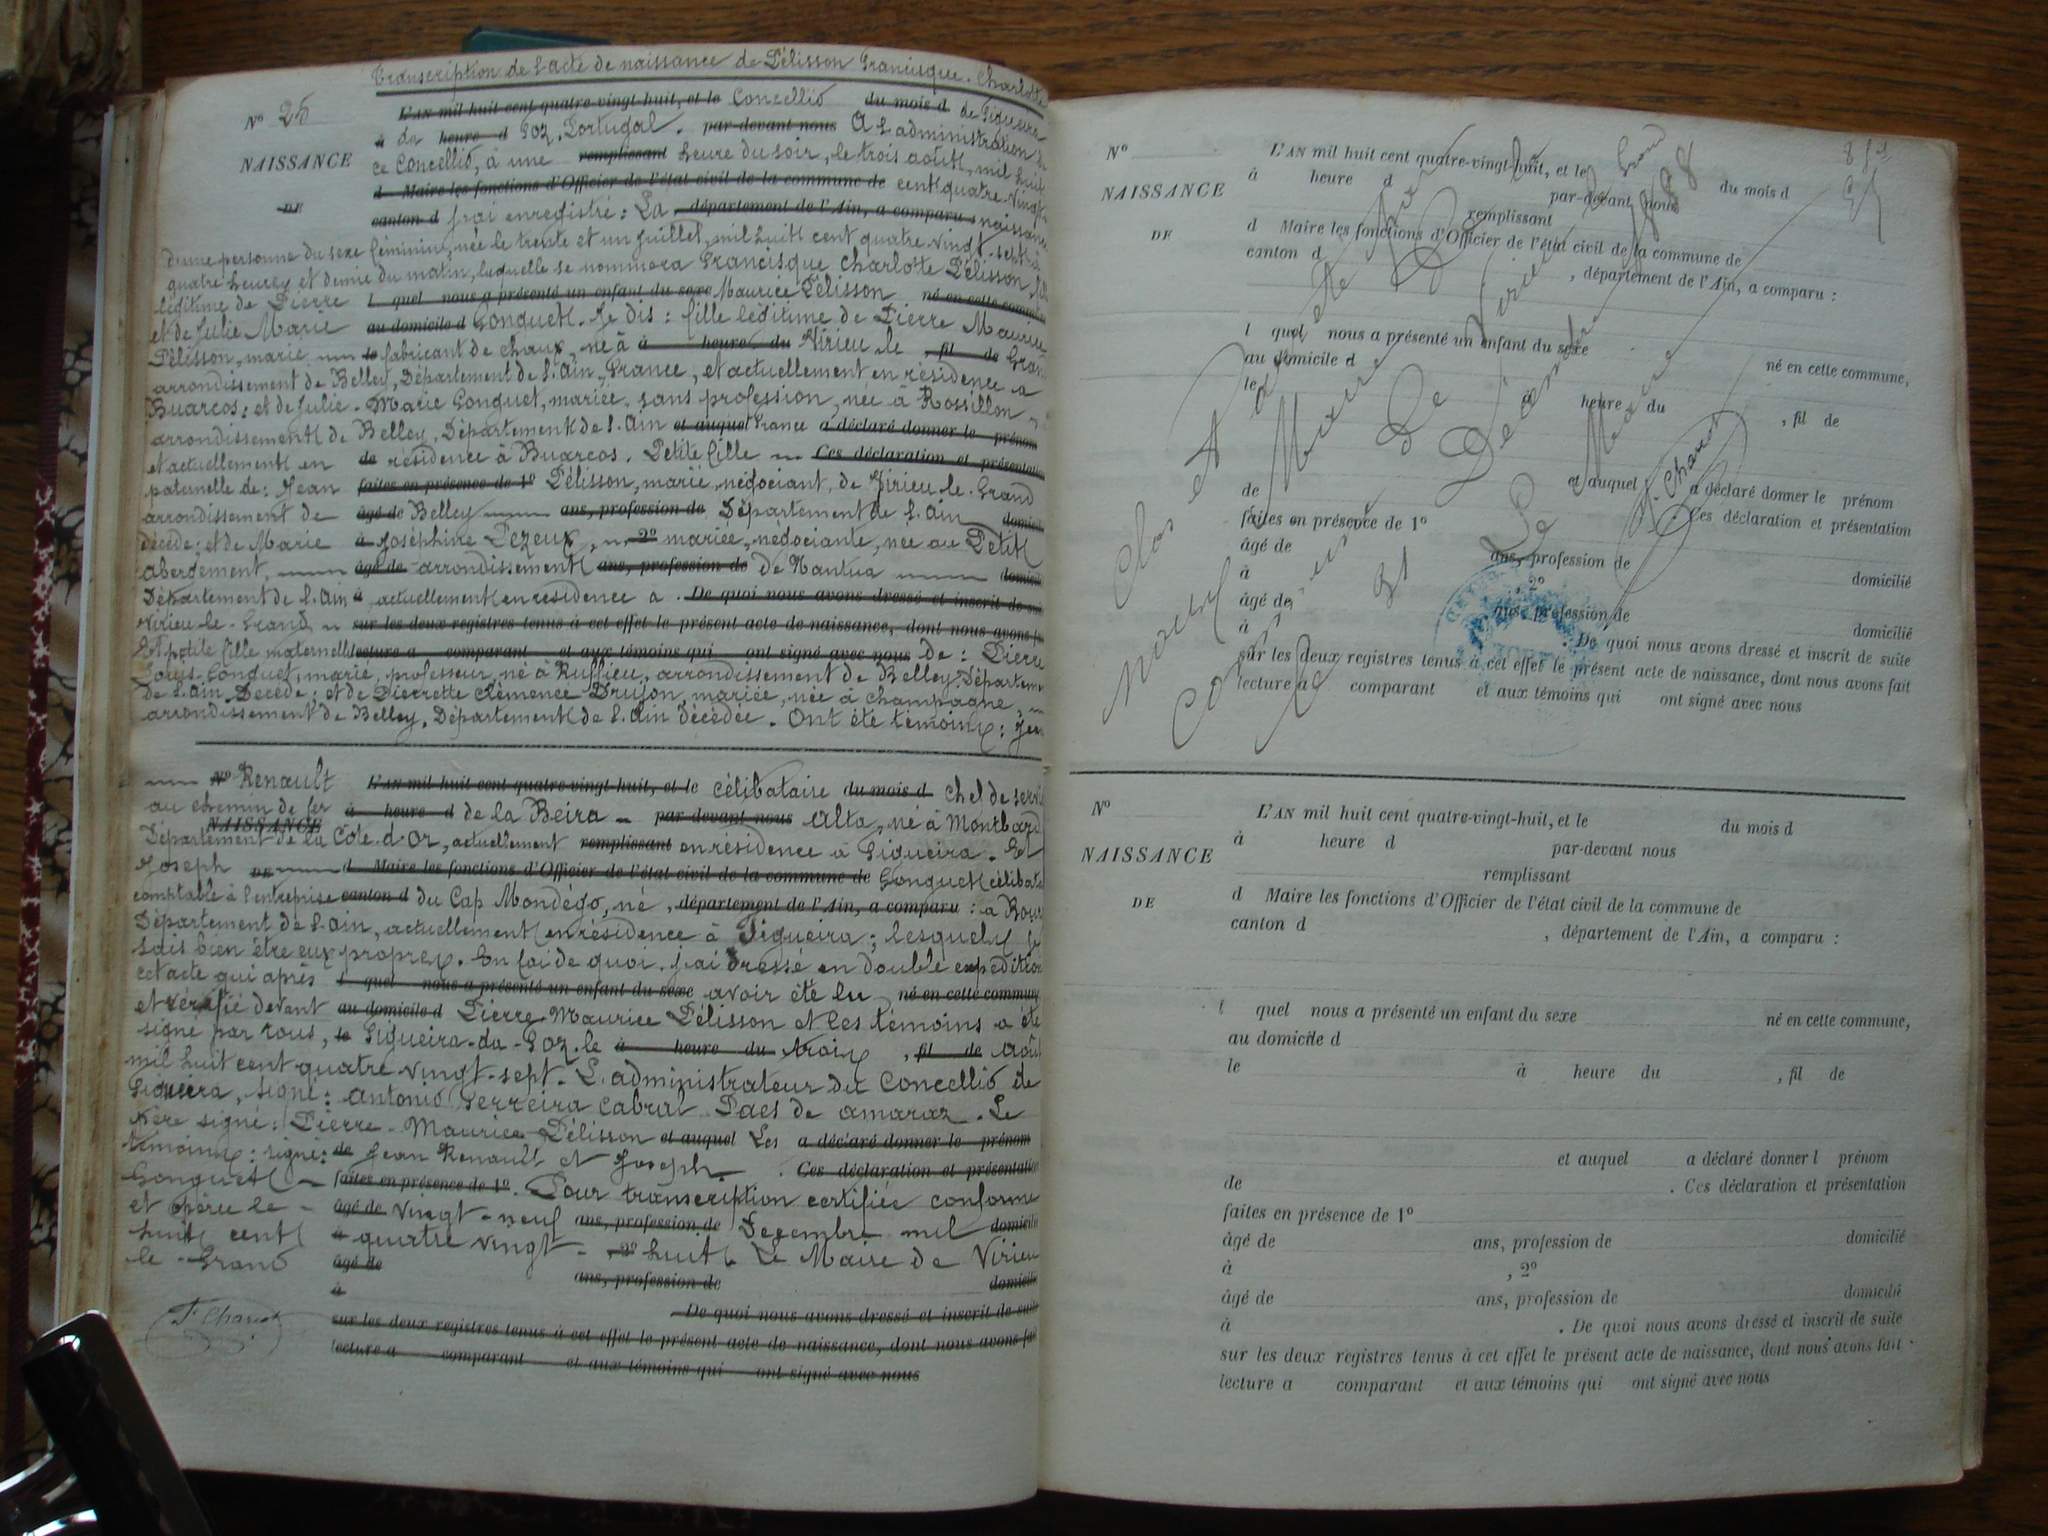 Transcription de l'acte de naissance de Pélisson Francisque. Charlotte
N° 25
L'AN mil huit cent quatre-vingt-huit, et le Concellio du mois d de Figueira
à da heure d Foz, Portugal. par-devant nous A l'administration de
NAISSANCE
ce Concellio, à une remplissant heure du soir, le trois août, mil huit
d Maire les fonctions d'Officier de l'état civil de la commune de cent quatre-vingt-
DE
canton d j'ai enregistré : La , département de l'Ain, a comparu : naissance
d'une personne du sexe féminin, née le trente et un juillet, mil huit cent quatre vingt-sept à
quatre heures et demie du matin, laquelle se nommera Francisque Charlotte Pélisson, fille
légitime de Pierre l quel nous a présenté un enfant du sexe Maurice Pélisson né en cette commune
et de Julie Marie au domicile d Gonguet. Je dis : fille légitime de Pierre Maurice
Pélisson, marié le fabricant de chaux, né à à heure du Virieu le , fil de Grand
arrondissement de Belley, Département de l'Ain, France, et actuellement en résidence à
Buarcos; et de Julie-Marie Gonguet, mariée, sans profession, née à Rossillon
arrondissement de Belley, Département de l'Ain et auquel France a déclaré donner le prénom
et actuellement en de résidence à Buarcos. Petite fille Ces déclaration et présentation
paternelle de : Jean faites en présence de 1° Pélisson, marié, négociant, de Virieu-le-Grand
arrondissement de âgé de Belley ans, profession de Département de l'Ain domicilié
décédé; et de Marie à Joséphine Pezeux, 2° mariée, négociante, née au Petit
abergement, âgé de arrondissement ans, profession de de Nantua domicilié
Département de l'Ain à, actuellement en résidence à . De quoi nous avons dressé et inscrit de suite
Virieu-le-Grand sur les deux registres tenus à cet effet le présent acte de naissance, dont nous avons fait
Et petite fille maternelle lecture a comparant et aux témoins qui ont signé avec nous de : Pierre
Louis Gonguet, marié, professeur, né à Ruffieu, arrondissement de Belley, Département
de l'Ain, Décédé; et de Pierrette Clémence Drujon, mariée, née à Champagne,
arrondissement de Belley, Département de l'Ain décédée. Ont été témoins : Jean
N° Renault L'AN mil huit cent quatre-vingt-huit, et le célibataire du mois d chef de service
au chemin de fer à heure d de la Beira - par-devant nous Alta, né à Montbard
NAISSANCE
Département de la Côte-d'Or, actuellement remplissant en résidence à Figueira. Et
Joseph DE d Maire les fonctions d'Officier de l'état civil de la commune de Gonguet célibataire
comptable à l'entreprise canton d du Cap Mondégo, né , département de l'Ain, a comparu : à
Département de l'Ain, actuellement en résidence à Figueira; lesquels je
sais bien être eux propres. En foi de quoi, j'ai dressé en double expédition
cet acte qui après l quel nous a présenté un enfant du sexe avoir été lu né en cette commune
et vérifié devant au domicile d Pierre Maurice Pélisson et les témoins a été
signé par tous, le Figueira-da-Foz, le à heure du trois , fil de Août
mil huit cent quatre vingt-sept. L'administrateur du Concellio de
Figueira, signé : Antonio Ferreira Cabral Paes de Amaraz. Le
père signé : Pierre-Maurice Pélisson et auquel Les a déclaré donner le prénom
témoins : signé : de Jean Renault et Joseph . Ces déclaration et présentation
Gonguet faites en présence de 1°. Pour transcription certifiée conforme
et opérée le âgé de vingt-neuf ans, profession de Décembre mil domicilié
huit cent à quatre vingt- , 2° huit. Le Maire de Virieu
le-Grand âgé de ans, profession de domicilié
à De quoi nous avons dressé et inscrit de suite
F. Charvet
sur les deux registres tenus à cet effet le présent acte de naissance, dont nous avons fait
lecture a comparant et aux témoins qui ont signé avec nous
N°
L'AN mil huit cent quatre-vingt-huit, et le du mois d
à heure d par-devant nous
NAISSANCE
remplissant
DE
d Maire les fonctions d'Officier de l'état civil de la commune de
canton d , département de l'Ain, a comparu :
l quel nous a présenté un enfant du sexe né en cette commune,
au domicile d
le à heure du , fil de
et auquel a déclaré donner le prénom
de . Ces déclaration et présentation
faites en présence de 1°
âgé de ans, profession de domicilié
à , 2°
âgé de ans, profession de domicilié
à . De quoi nous avons dressé et inscrit de suite
sur les deux registres tenus à cet effet le présent acte de naissance, dont nous avons fait
lecture a comparant et aux témoins qui ont signé avec nous
Clos et arrêté par
nous, Maire de Virieu le Grand
ce 31 Décembre 1888
Le Maire
F. Charvet
N°
L'AN mil huit cent quatre-vingt-huit, et le du mois d
à heure d par-devant nous
NAISSANCE
remplissant
DE
d Maire les fonctions d'Officier de l'état civil de la commune de
canton d , département de l'Ain, a comparu :
l quel nous a présenté un enfant du sexe né en cette commune,
au domicile d
le à heure du , fil de
et auquel a déclaré donner l prénom
de . Ces déclaration et présentation
faites en présence de 1°
âgé de ans, profession de domicilié
à , 2°
âgé de ans, profession de domicilié
à . De quoi nous avons dressé et inscrit de suite
sur les deux registres tenus à cet effet le présent acte de naissance, dont nous avons fait
lecture a comparant et aux témoins qui ont signé avec nous